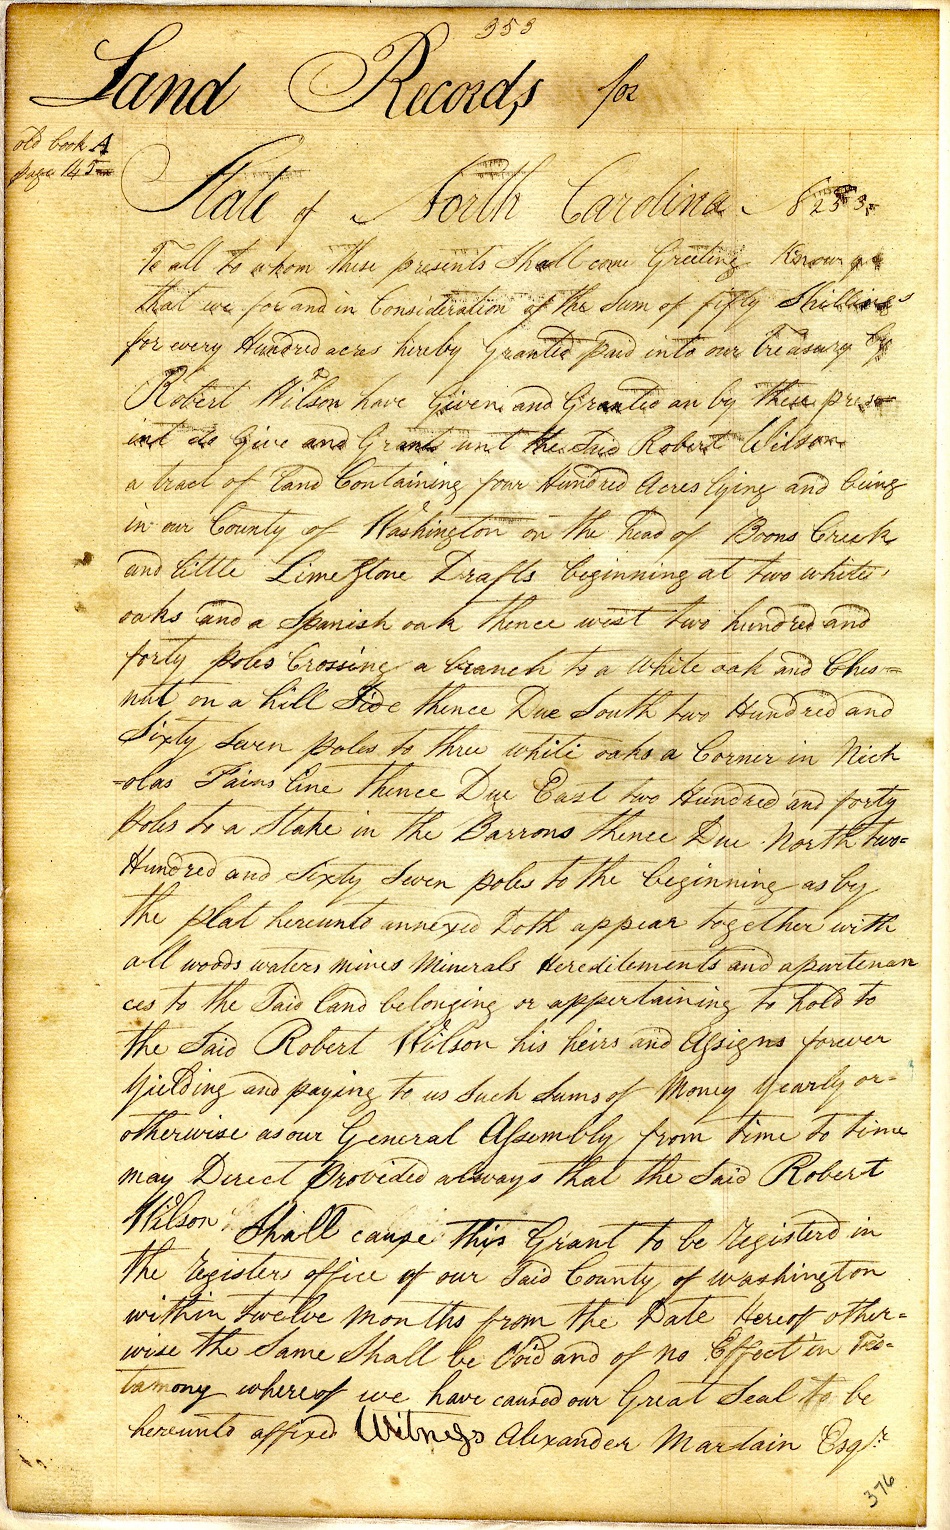 353
Land Records for
old book A
page 145
State of North Carolina
To all to whom these presents Shall come Greeting Know ye
that we for and in Consideration of the Sum of fifty Shillings
for every Hundred acres hereby Granted paid into our Treasury by
Robert Wilson have Given and Granted an by these pres
ent do Give and Grant unt the Said Robert Wilson
a tract of Land Containing four Hundred Acres lying and being
in our County of Washington on the head of Boons Creek
and little LimeStone Drafts beginning at two white
oaks and a Spanish oak thence west two hundred and
forty poles Crossing a branch to a White oak and Ches=
nut on a hill Side thence Due South two Hundred and
Sixty Seven poles to three white oaks a Corner in Nich
=olas Fains line thence Due East two Hundred and forty
Poles to a Stake in the Barrons thence Due North two=
Hundred and Sixty Seven poles to the beginning as by
the plat hereunto annexed Doth appear together with
all woods waters mines Minerals Hereditements and apurtenan
ces to the Said land belonging or appertaining to hold to
the Said Robert Wilson his heirs and Assigns forever
Yielding and paying to us Such Sums of Money Yearly or-
otherwise as our General Assembly from time to time
may Direct Provided always that the Said Robert
Wilson Shall cause this Grant to be registerd in
the registers office of our Said County of Washington
within twelve months from the Date Hereof other=
wise the Same Shall be Void and of no Effect in Tes-
tamony whereof we have caused our Great Seal to be
hereunto affixed Witness Alexander Martain Esqr
376